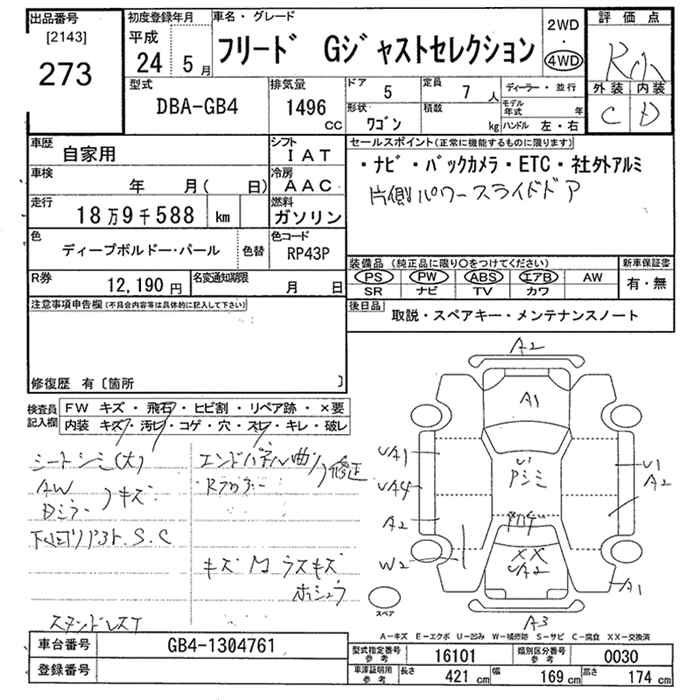 出品番号 初度登録年月 車名・グレード 2WD 評価点
[2143] 平成 フリード Gジャストセレクション ・
273 24 5月 4WD R
型式 排気量 ドア 5 定員 7人 ディーラー・並行 外装 内装
DBA-GB4 1496 cc 形状 ワゴン 積載 kg モデル年式 年 C D
ハンドル 左・右
車歴 自家用 シフト IAT セールスポイント(正常に機能するものに限ります)
車検 年 月( 日) 冷房 AAC ・ナビ・バックカメラ・ETC・社外アルミ
走行 18万9千588 km 燃料 ガソリン 片側パワースライドドア
色 ディープボルドー・パール 色替 色コード RP43P
装備品(純正品に限り○をつけてください) 新車保証書
R券 12,190円 名変通知期限 月 日 PS PW ABS エアB AW 有・無
SR ナビ TV カワ
注意事項申告欄(不具合内容等は具体的に記入して下さい) 後日品 取説・スペアキー・メンテナンスノート
修復歴 有〔箇所 〕
検査員記入欄 FW キズ・飛石・ヒビ割・リペア跡・×要
内装 キズ・汚レ・コゲ・穴・スレ・キレ・破レ
シートシミ(大) エンドパネル曲り修正
AW
Dミラー キズ
S.C
キズ M ラスキズ
ホシュウ
A2
A1
UA1 U1
UA4 A2
A2
W2 XX
UA2 A1
スペア
A3
A-キズ E-エクボ U-凹み W-補修跡 S-サビ C-腐食 XX-交換済
車台番号 GB4-1304761 型式指定番号参考 16101 類別区分番号参考 0030
登録番号 車庫証明用参考 長さ 421cm 幅 169cm 高さ 174cm